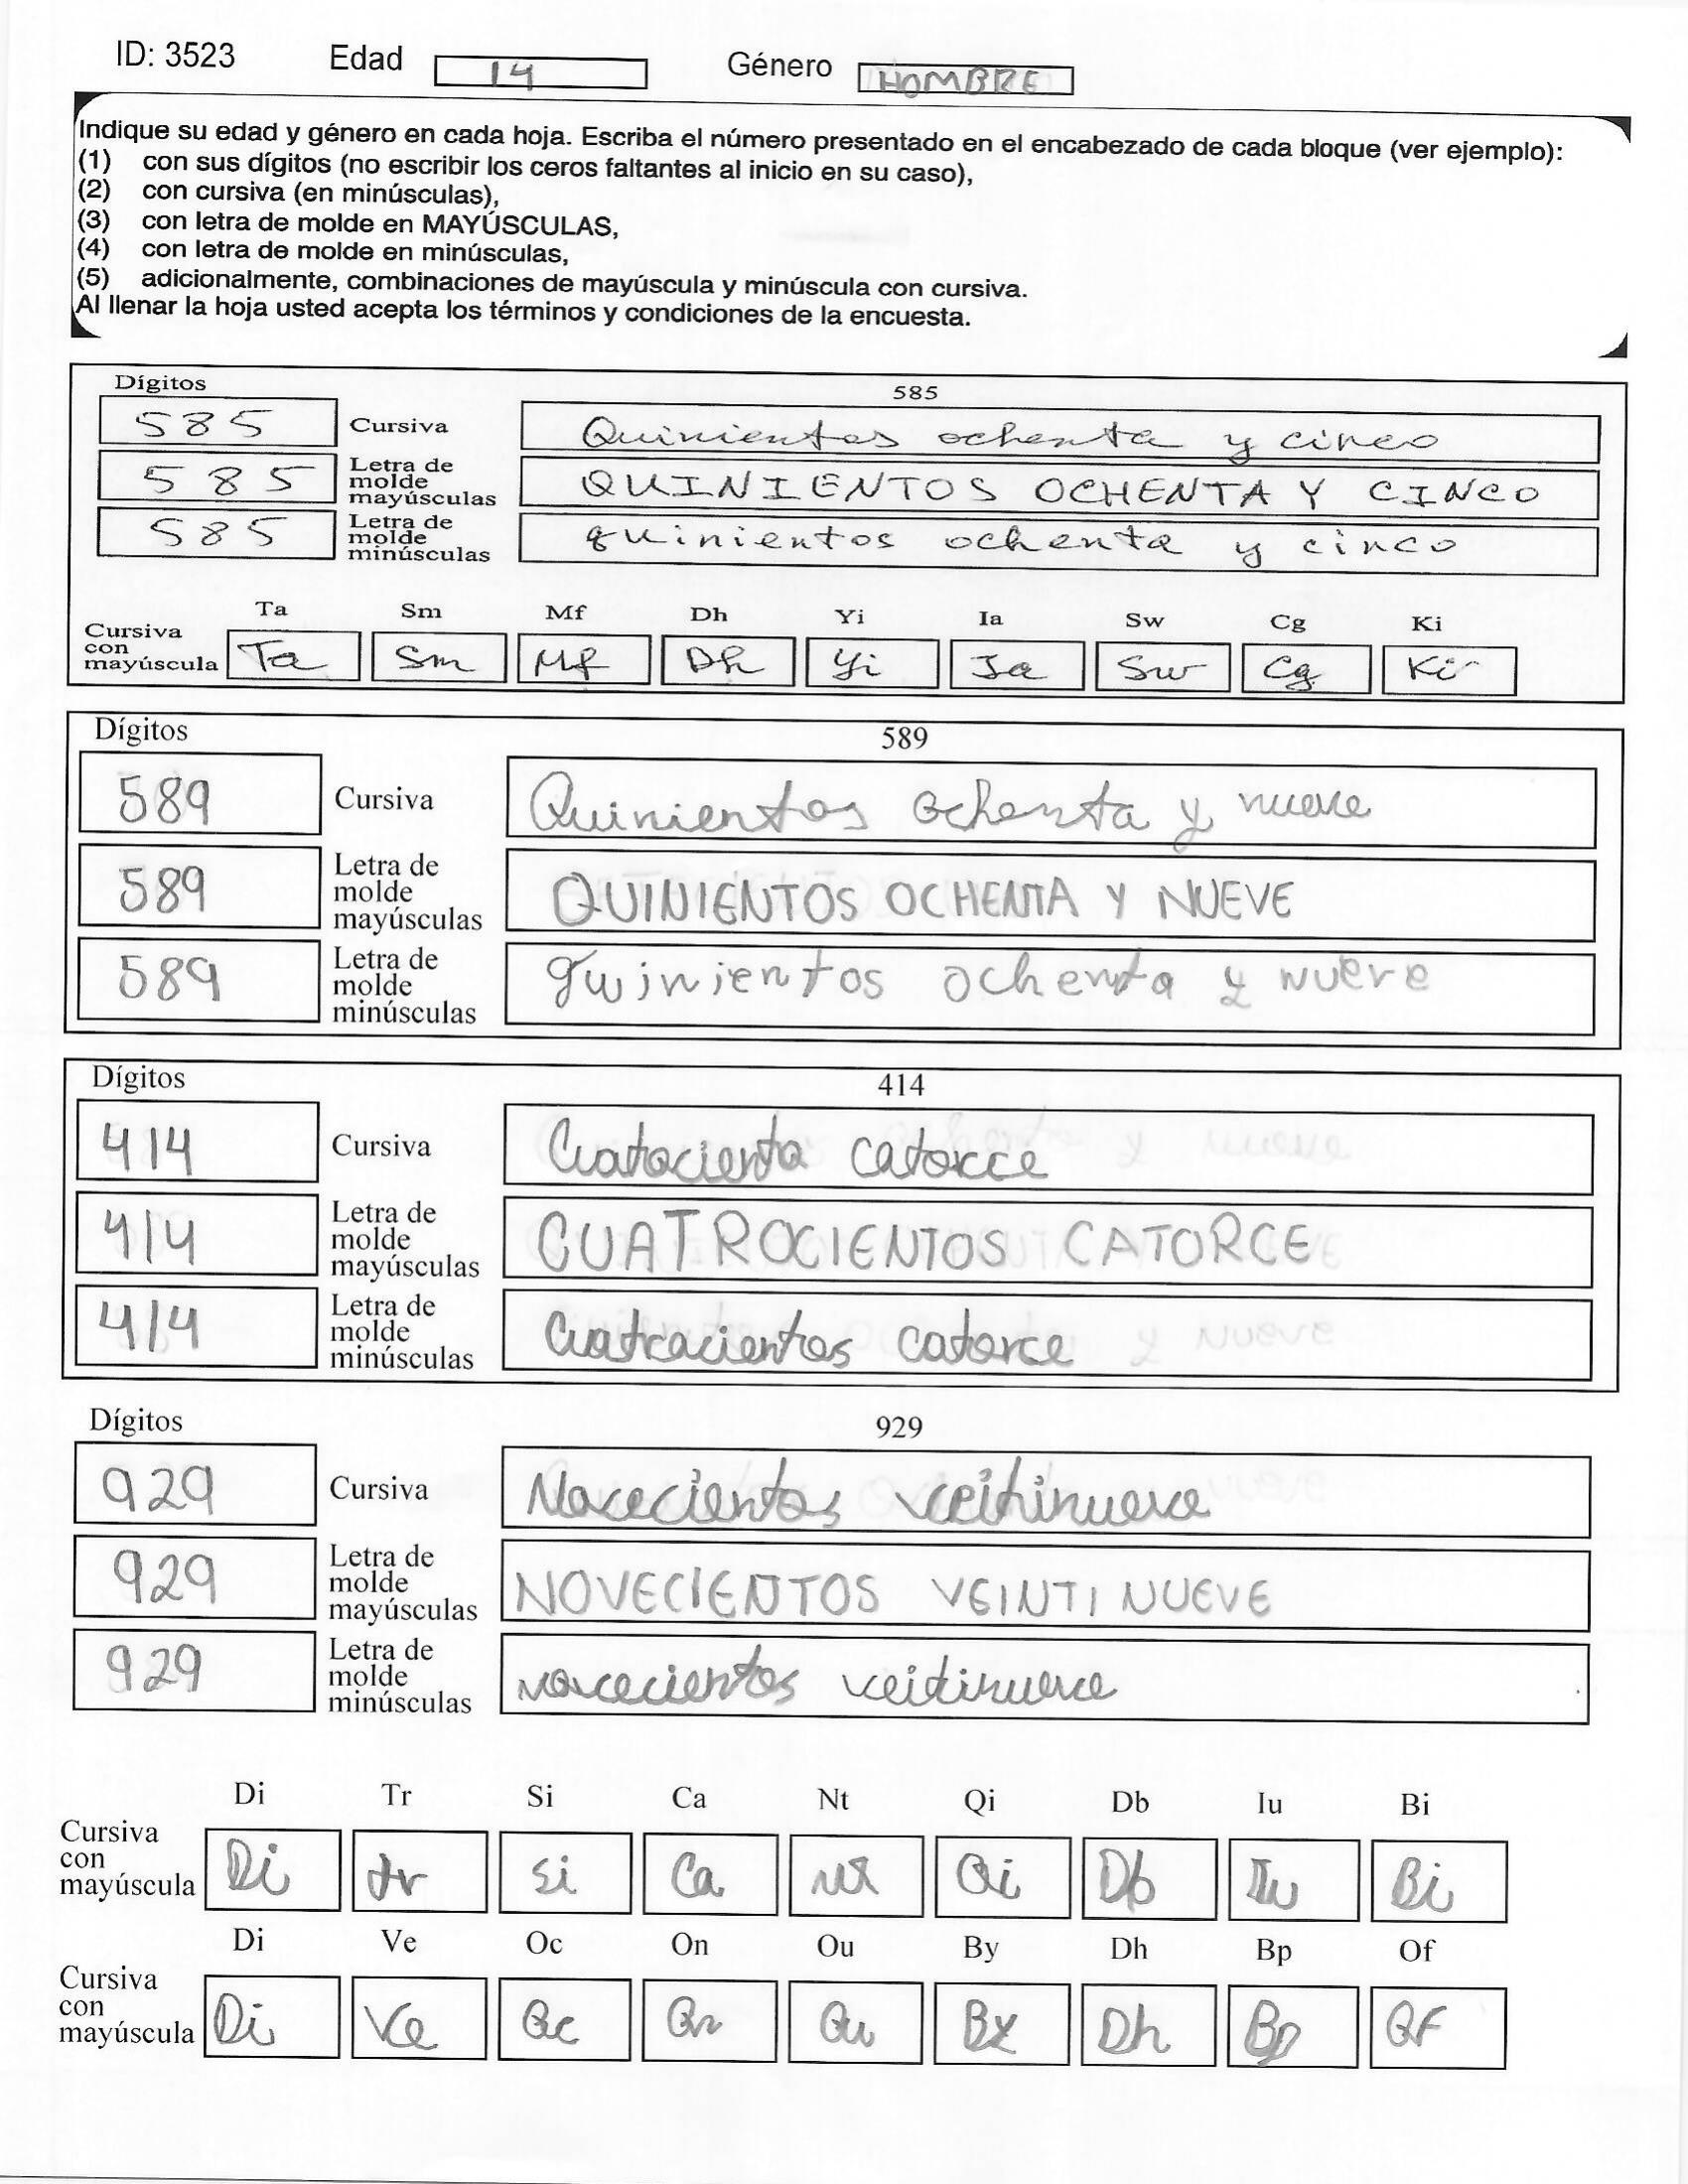 ID: 3523 Edad 14 Género HOMBRE
Indique su edad y género en cada hoja. Escriba el número presentado en el encabezado de cada bloque (ver ejemplo):
(1) con sus dígitos (no escribir los ceros faltantes al inicio en su caso),
(2) con cursiva (en minúsculas),
(3) con letra de molde en MAYÚSCULAS,
(4) con letra de molde en minúsculas,
(5) adicionalmente, combinaciones de mayúscula y minúscula con cursiva.
Al llenar la hoja usted acepta los términos y condiciones de la encuesta.
Dígitos 585
585 Cursiva Quinientos ochenta y cinco
585 Letra de molde mayúsculas QUINIENTOS OCHENTA Y CINCO
585 Letra de molde minúsculas quinientos ochenta y cinco
Ta Sm Mf Dh Yi Ia Sw Cg Ki
Cursiva con mayúscula Ta Sm Mf Dh Yi Ia Sw Cg Ki
Dígitos 589
589 Cursiva Quinientos ochenta y nueve
589 Letra de molde mayúsculas QUINIENTOS OCHENTA Y NUEVE
589 Letra de molde minúsculas quinientos ochenta y nueve
Dígitos 414
414 Cursiva Cuatociento catorce
414 Letra de molde mayúsculas CUATROCIENTOS CATORCE
414 Letra de molde minúsculas Cuatrocientos catorce
Dígitos 929
929 Cursiva Novecientos veitinueve
929 Letra de molde mayúsculas NOVECIENTOS VEINTI NUEVE
929 Letra de molde minúsculas novecientos veitinueve
Di Tr Si Ca Nt Qi Db Iu Bi
Cursiva con mayúscula Di tr si Ca Nt Qi Db Iu Bi
Di Ve Oc On Ou By Dh Bp Of
Cursiva con mayúscula Di Ve Oc On Ou By Dh Bp Of